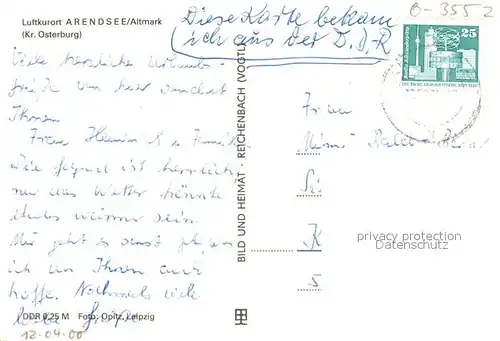 Luftkurort ARENDSEE/Altmark
(Kr. Osterburg)
Diese Karte bekam
ich aus der D.D.R
6-3552
25
DEUTSCHE DEMOKRATISCHE REPUBLIK
Viele herzliche Urlaubs-
grüße von hier sendet
Ihnen
Frau
Die Gegend ist herrlich,
nur das Wetter könnte
etwas wärmer sein.
Mir geht es sonst gut, was
ich von Ihnen auch
hoffe. Nochmals viele
liebe Grüße
BILD UND HEIMAT · REICHENBACH (VOGTL)
Frau
K
5
privacy protection
Datenschutz
DDR 0,25 M Foto: Opitz, Leipzig
12.04.00